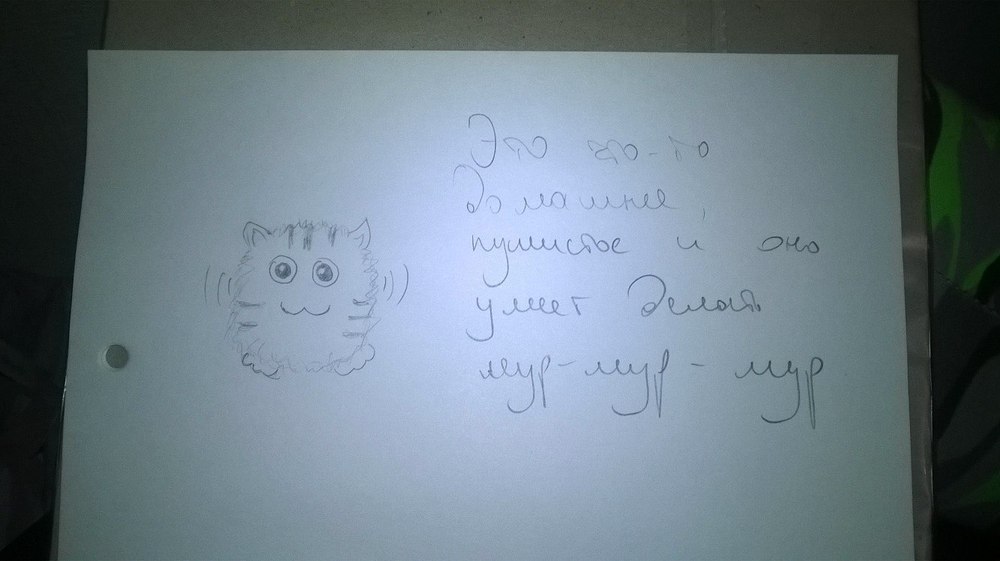 Это что-то
домашнее,
пушистое и оно
умеет делать
мур-мур-мур